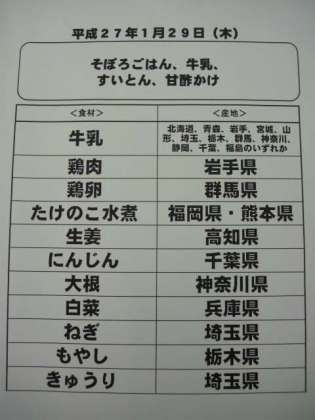 平成２７年１月２９日（木）
そぼろごはん、牛乳、
すいとん、甘酢かけ
＜食材＞ ＜産地＞
牛乳 北海道、青森、岩手、宮城、山
形、埼玉、栃木、群馬、神奈川、
静岡、千葉、福島のいずれか
鶏肉 岩手県
鶏卵 群馬県
たけのこ水煮 福岡県・熊本県
生姜 高知県
にんじん 千葉県
大根 神奈川県
白菜 兵庫県
ねぎ 埼玉県
もやし 栃木県
きゅうり 埼玉県